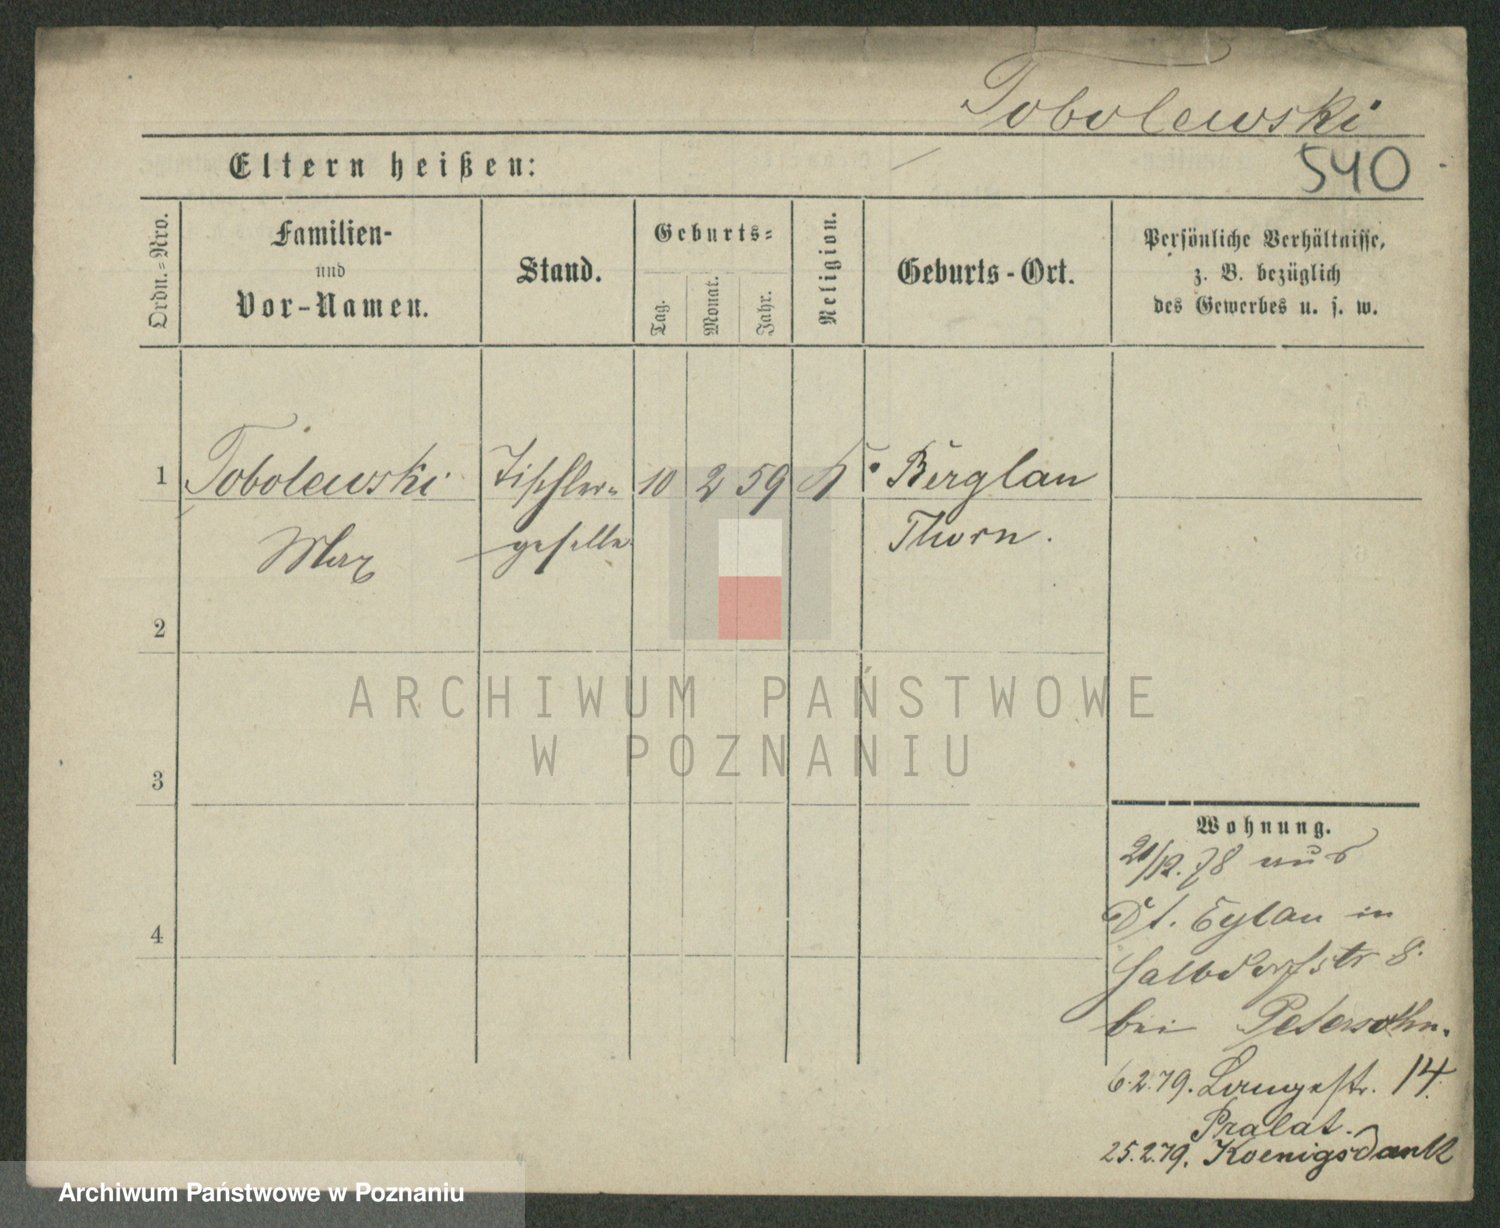 Tobolewski
540
Eltern heißen:
Ordn.=Nro.
Familien-
und
Vor-Namen.
Stand.
Geburts=
Tag.
Monat.
Jahr.
Religion.
Geburts-Ort.
Persönliche Verhältnisse,
z. B. bezüglich
des Gewerbes u. s. w.
1 Tobolewski Tischler= 10 2 59 Berglau
Max geselle Thorn.
2
ARCHIWUM PAŃSTWOWE
W POZNANIU
3
Wohnung.
21/12.78 aus
Dt. Eylau in
Halbdorfstr 8.
4
bei Petersohn.
6.2.79. Langestr. 14.
Pralat.
25.2.79. Koenigsdank
Archiwum Państwowe w Poznaniu